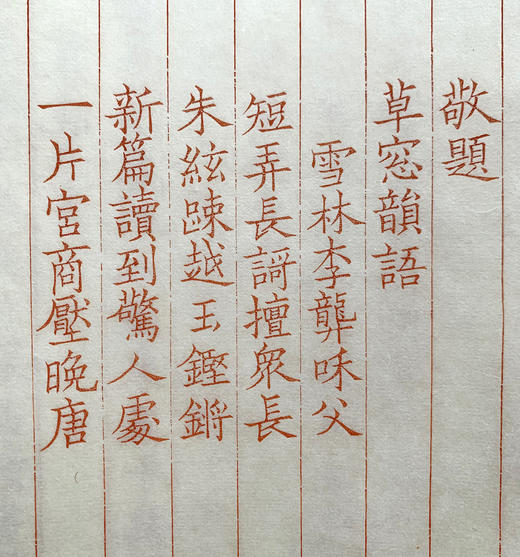 敬題
草窓韻語
雪林李龏和父
短弄長謌擅衆長
朱絃踈越玉鏗鏘
新篇讀到驚人處
一片宮商壓晚唐